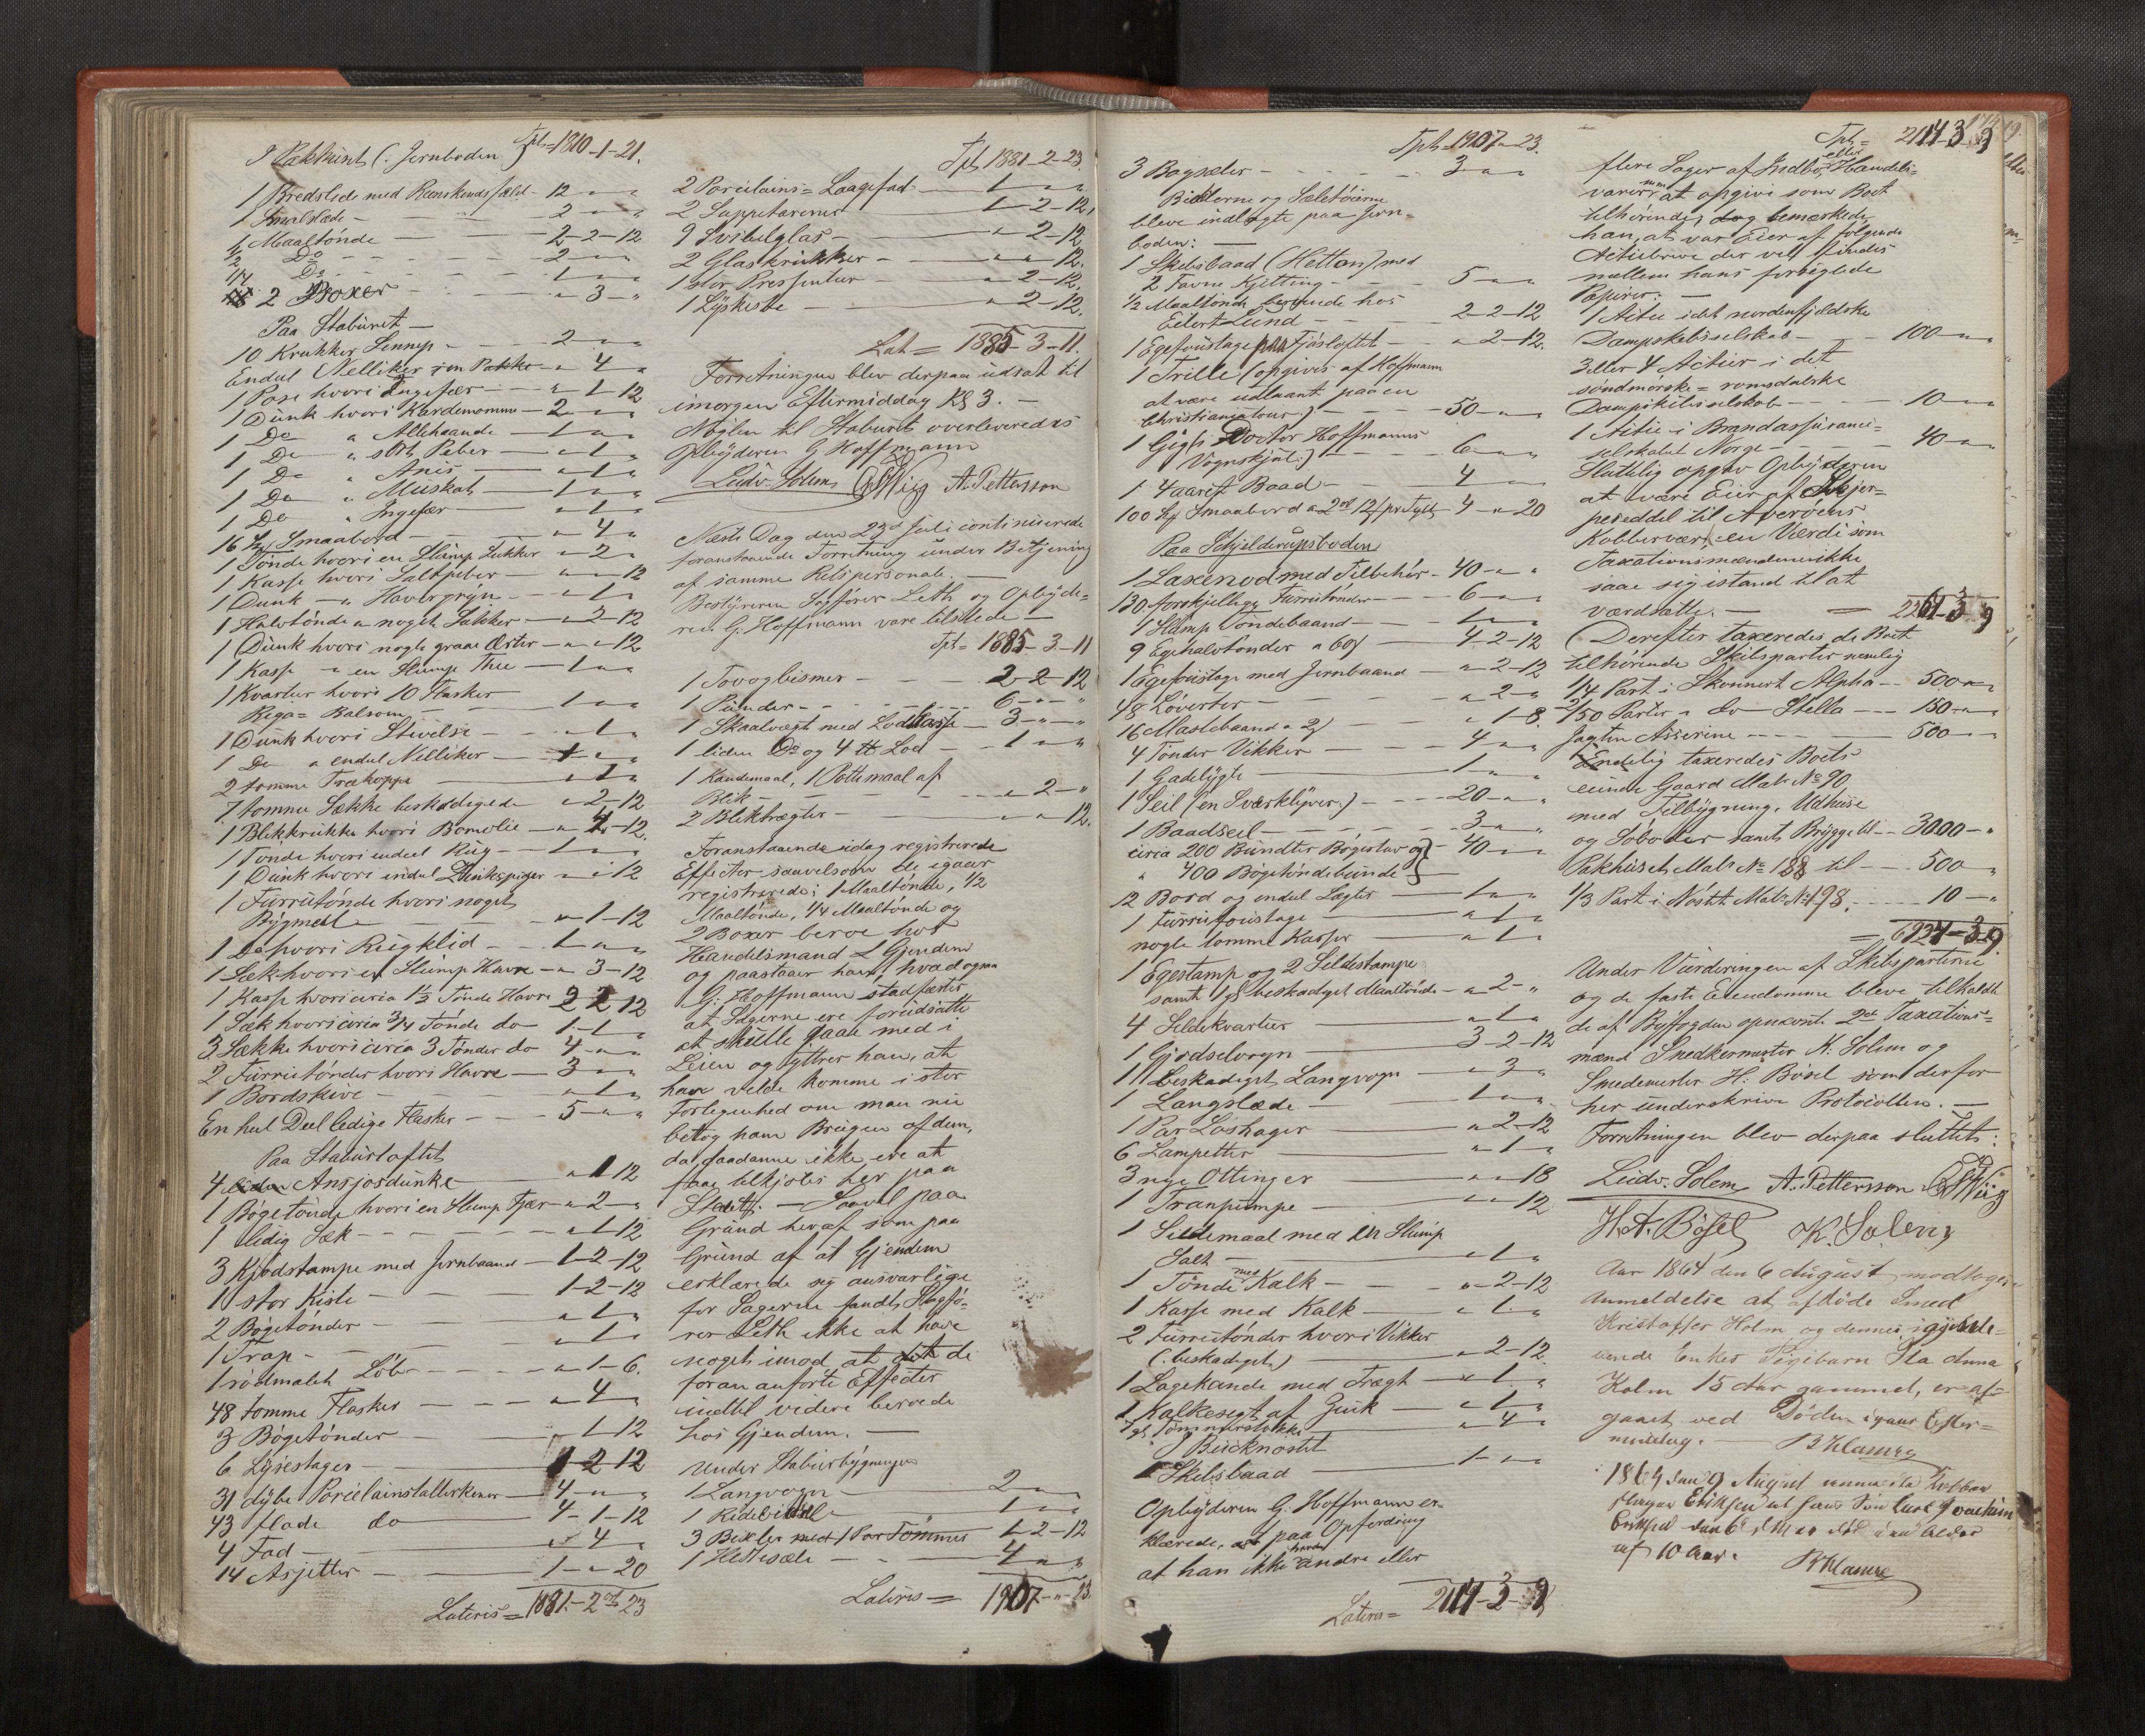 I Pakhuset (: Jernboden :) Tpt = 1810-1-21.
1 Bredslede med - 12 - " - "
1 Smalslæde - 2 - " - "
1/1 Maaltönde - 2-2-12
1/2 Do - 2 - " - "
1/4 Do - 1 - " - "
2 Boxer - " - 3 - "
Paa Staburet -
10 Krukker Sennep - 2 - " - "
Endel Nelliker i en Pakke - " - 4 - "
1 Pose hvori Ingefær - " - 1-12
1 Dunk hvori Kardemomme - 2 - " - "
1 Do " Allehaande - 1 - " - "
1 Do " sort Peber - " - 1 - "
1 Do " Anis - " - 1 - "
1 Do " Muskat - 1 - " - "
1 Do " Ingefær - " - 1 - "
16 Smaabord - " - 4 - "
1 Tönde hvori en Slump Sukker - " - 2 - "
1 Kasse hvori Saltpeter - " - " - 12
1 Dunk - " Havregryn - " - 1 - "
1 Halvtönde " noget Sukker - " - 2-12
1 Dunk hvori nogle graae Erter - " - " - 12
1 Kasse " en Slump Thee - 1 - " - "
1 Kvarter hvori 10 Flasker
Riga= Balsom - 1 - " - "
1 Dunk hvori Stivelse - " - 1 - "
1 Do " endel Nelliker - 1 - " - "
2 tomme Trækoppe - " - 1 - "
7 tomme Sække beskadigede - " - 2-12
1 Blikkrukke hvori Bomolie - " - 1-12.
1 Tönde hvori endeel Rug - 1 - " - "
1 Dunk hvori endel - " - " 12
1 Furutönde hvori noget
Bygmeel - " - 1-12
1 Do hvori Rugklid - 1 - " - "
1 Sæk hvori en Slump Havre - " - 3-12
1 Kasse hvori circa 1 1/2 Tönde Havre 2 2 12
1 Sæk hvori circa 3/4 Tönde do 1-1-"
3 Sække hvori circa 3 Tönder do 4 - " - "
2 Furutönder hvori Havre - 3 - " - "
1 Bordskive - " - 1 - "
En hel Deel ledige Flasker - 5 - " - "
Paa Staburloftet
4 Ansjosdunke - " - 1 12
1 Bögetönde hvori en Slump Fjær - " - 2 - "
1 ledig Sæk - " - 1-12
3 Kjödstampe med Jernbaand - 1-2-12
1 stor Kiste - 1-2-12
2 Bögetönder - " - 1 - "
1 Trap - " - 1 - "
1 rödmalet - " - 1-6.
48 tomme Flasker - " - 4 - "
3 Bögetönder - " - 1-12
6 Lysestager - 1 2 12
31 dybe Porcelainstallerkener - 4 - " - "
43 flade do - 4-1-12
4 Fad - " - 4 - "
14 Asjetter - 1 - " - 20
Lateris = 1881-2-23
Tpt 1881-2-23
2 Porcelains= - 1 - " - "
2 - 1-2-12,
9 Svibelglas - " - 2-12
2 Glaskrukker - " - " - 12.
1 stor - " - 2-12.
1 - " - 2-12.
Lat = 1885-3-11.
Forretningen blev derpaa udsat til
imorgen Eftermiddag Kl 3. -
Nöglen til Staburet overleveredes
Opbyderen G Hoffmann
Ludv. Solem A. Pettersson
Næste Dag den 23d Juli continuerede
foranstaaende Forretning under Betjening
af samme Retspersonale. -
Bestyreren Sagförer Leth og Opbyde=
ren G. Hoffmann vare tilstede -
Tpt = 1885-3-11
1 Tovogbismer - 2-2-12
1 Punder - 6 - " - "
1 Skaalvægt med - 3 - " - "
1 liden Do og 4 Lod - 1 - " - "
1 Kandemaal, 1 Pottemaal af
Blik - " - 2 - "
2 Bliktragter - " - " - 12.
Foranstaaende idag registrerede
Effecter saavelsom de igaar
registrerede: 1 Maaltönde, 1/2
Maaltönde, 1/4 Maaltönde og
2 Boxer beroe hos
Handelsmand L Gjendem
og paastaaer han, hvad ogsaa
G. Hoffmann stadfæster
at Sagerne ere forudsatte
at skulle gaae med i
Leien og yttrer han, at
han vilde komme i stor
Forlegenhed om man nu
betog ham Brugen af dem,
da saadanne ikke ere at
faae tilkjöbs her paa
Stedet. - Saavel paa
Grund heraf som paa
Grund af at Gjendem
erklærede sig ansvarlige
for Sagerne fandt Sagfö=
rer Leth ikke at have
noget imod at de
foran anförte Effecter
indtil videre beroede
hos Gjendem. -
Under Staburbygningen
1 Langvogn - 2 - " - "
1 - 1 - " - "
3 Bixler med 1 Par Tömmer 1-2-12
1 Hestesæle - 4 - " - "
Lateris = 1907-"-23
Tpt = 1907-"-23.
3 Bogsæler - 3 - " - "
Bixlerne og Sæletöierne
bleve indlagte paa Jern=
boden: -
1 Skibsbaad (Hetten) med
2 Favne Kjetting - 5 - " - "
1/2 Maaltönde beroende hos
Eilert Lund - 2-2-12
1 Egefoustage paa Fjösloftet - " - 2-12.
1 Trille (opgives af Hoffmann
at være udlaant paa en
Christianiatour.) - 50 - " - "
1 Gigh Doctor Hoffmanns
Vognskjul:) - 6 - " - "
1 4 aaret Baad - 4 - " - "
100 Smaabord - 4 - " - 20
Paa Schjelderupsboden
1 Laxenod med Tilbehör - 40 - " - "
130 forskjellige Furutönder - 6 - " - "
1 Slump Töndebaand - 1 - " - "
9 Egehalvtönder a 60 - 4 2-12
1 Egefoustage med Jernbaand - " - 2-12
48 - " - 2 - "
16 Mastebaand a 2 - " - 1-8.
4 Tönder Vikker - 4 - " - "
1 Gadelygte - 1 - " - "
1 Seil (en Sværklyver:) - 20 - " - "
1 Baadseil - 3 - " - "
circa 200 Bundter Bögestav og - 40 - " - "
" 400 Bögetöndebunde
12 Bord og endel Lægter - 1 - " - "
1 Furufoustage - " - 1 - "
nogle tomme Kasser - " - 1 - "
1 Egestamp og 2 Sildestampe
samt 1 beskadiget Maaltönde - " - 2 - "
4 Sildekvarter - " - 1 - "
1 Gjödselvogn - 3-2-12
1 beskadiget Langvogn - " - 3 - "
1 Langslæde - 1 - " - "
1 Par - " - 2-12
6 Lampetter - " - 1 - "
3 nye Ottinger - " - " - 18
1 Tranpumpe - " - " - 12
1 Sildemaal med en Slump
Salt - " - 1 - "
1 Tönde med Kalk - " - 2-12
1 Kasse med Kalk - " - 1 - "
2 Furutönder hvori Vikker
(: beskadiget:) - " - 2-12
1 Lagekande med Tragt - " - 1 - "
1 af - " - 1 - "
7 - " - 4 - "
I
1 Skibsbaad - 1 - " - "
Opbyderen G. Hoffmann er=
klærede, at paa Opfordring
at han ikke havde andre eller
Lateris = 2114-3-9
Tpt = 2114-3-9
flere Sager af Indbo eller Handels=
varer at opgive som Boet
tilhörende, dog bemærkede
han, at var Eier af fölgende
Actiebreve der vil findes
mellem hans forseglede
Papirer: -
1 Actie i det nordenfjeldske
Dampskibsselskab - 100 - " - "
3 eller 4 Actier i det
söndmörske = romsdalske
Dampskibsselskab - 10 - " - "
1 Actie i Brandassurance=
selskabet Norge - 40 - " - "
Sluttelig opgav Opbyderen
at være Eier af
til Averöens
Kobberværk, en Værdi som
Taxationsmændene ikke
saae sig istand til at
værdsætte. - = 2264-3-9
Derefter taxeredes de Boet
tilhörende Skibsparter nemlig
1/4 Part i Skonnert Alpha - 500 - " - "
2/50 Parter " do Stella - 150 - " - "
Jagten - 500 - " - "
Endelig taxeredes Boets
Gaard Matr No 90
med Tilbygning, Udhuse
og Söboder samt Brygge til - 3000 - "
Pakhuset Matr No 188 til - 500 - "
1/3 Part i Nöstet Matr No 198. - 10 - "
= 6924-3-9
Under Vurderingen af Skibsparterne
og de faste Eiendomme bleve tilkaldt
de af Byfogden opnævnte 2de Taxations=
mænd Snedkermester K: Solem og
Smedemester H: Bösel som derfor
her underskrive Protocollen. -
Forretningen blev derpaa sluttet:
Ludv. Solem A. Pettersson
H. A. Bösel K. Solem
Aar 1864 den 6 August modtoges
Anmeldelse at aflöde Smed
Kristoffer Holm og dennes igjenle=
vende Enkes Pigebarn Ida Anna
Holm 15 Aar gammel, er af=
gaaet ved Döden igaar Efter=
middag. -
1864 den 9 August
at hans Sön Carl Joachim
den 6 Alder
af 10 Aar.